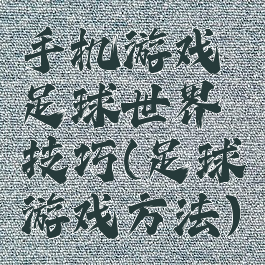 手机游戏
足球世界
技巧(足球
游戏方法)